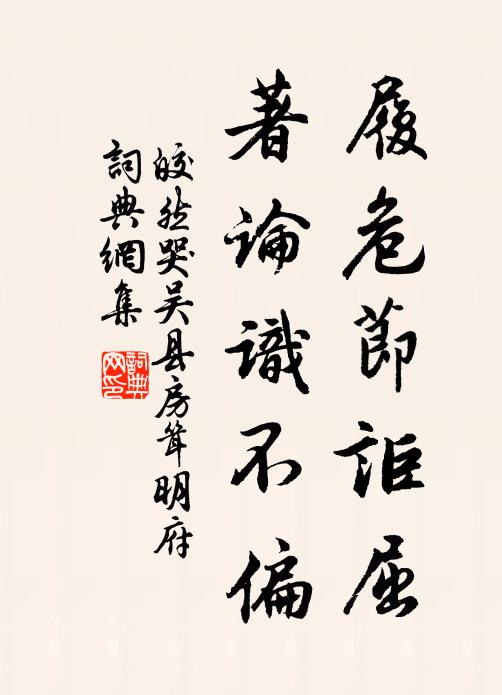 履危節詎屈
著論識不偏
皎然哭吴县房耸明府
詞典網集
詞典网印